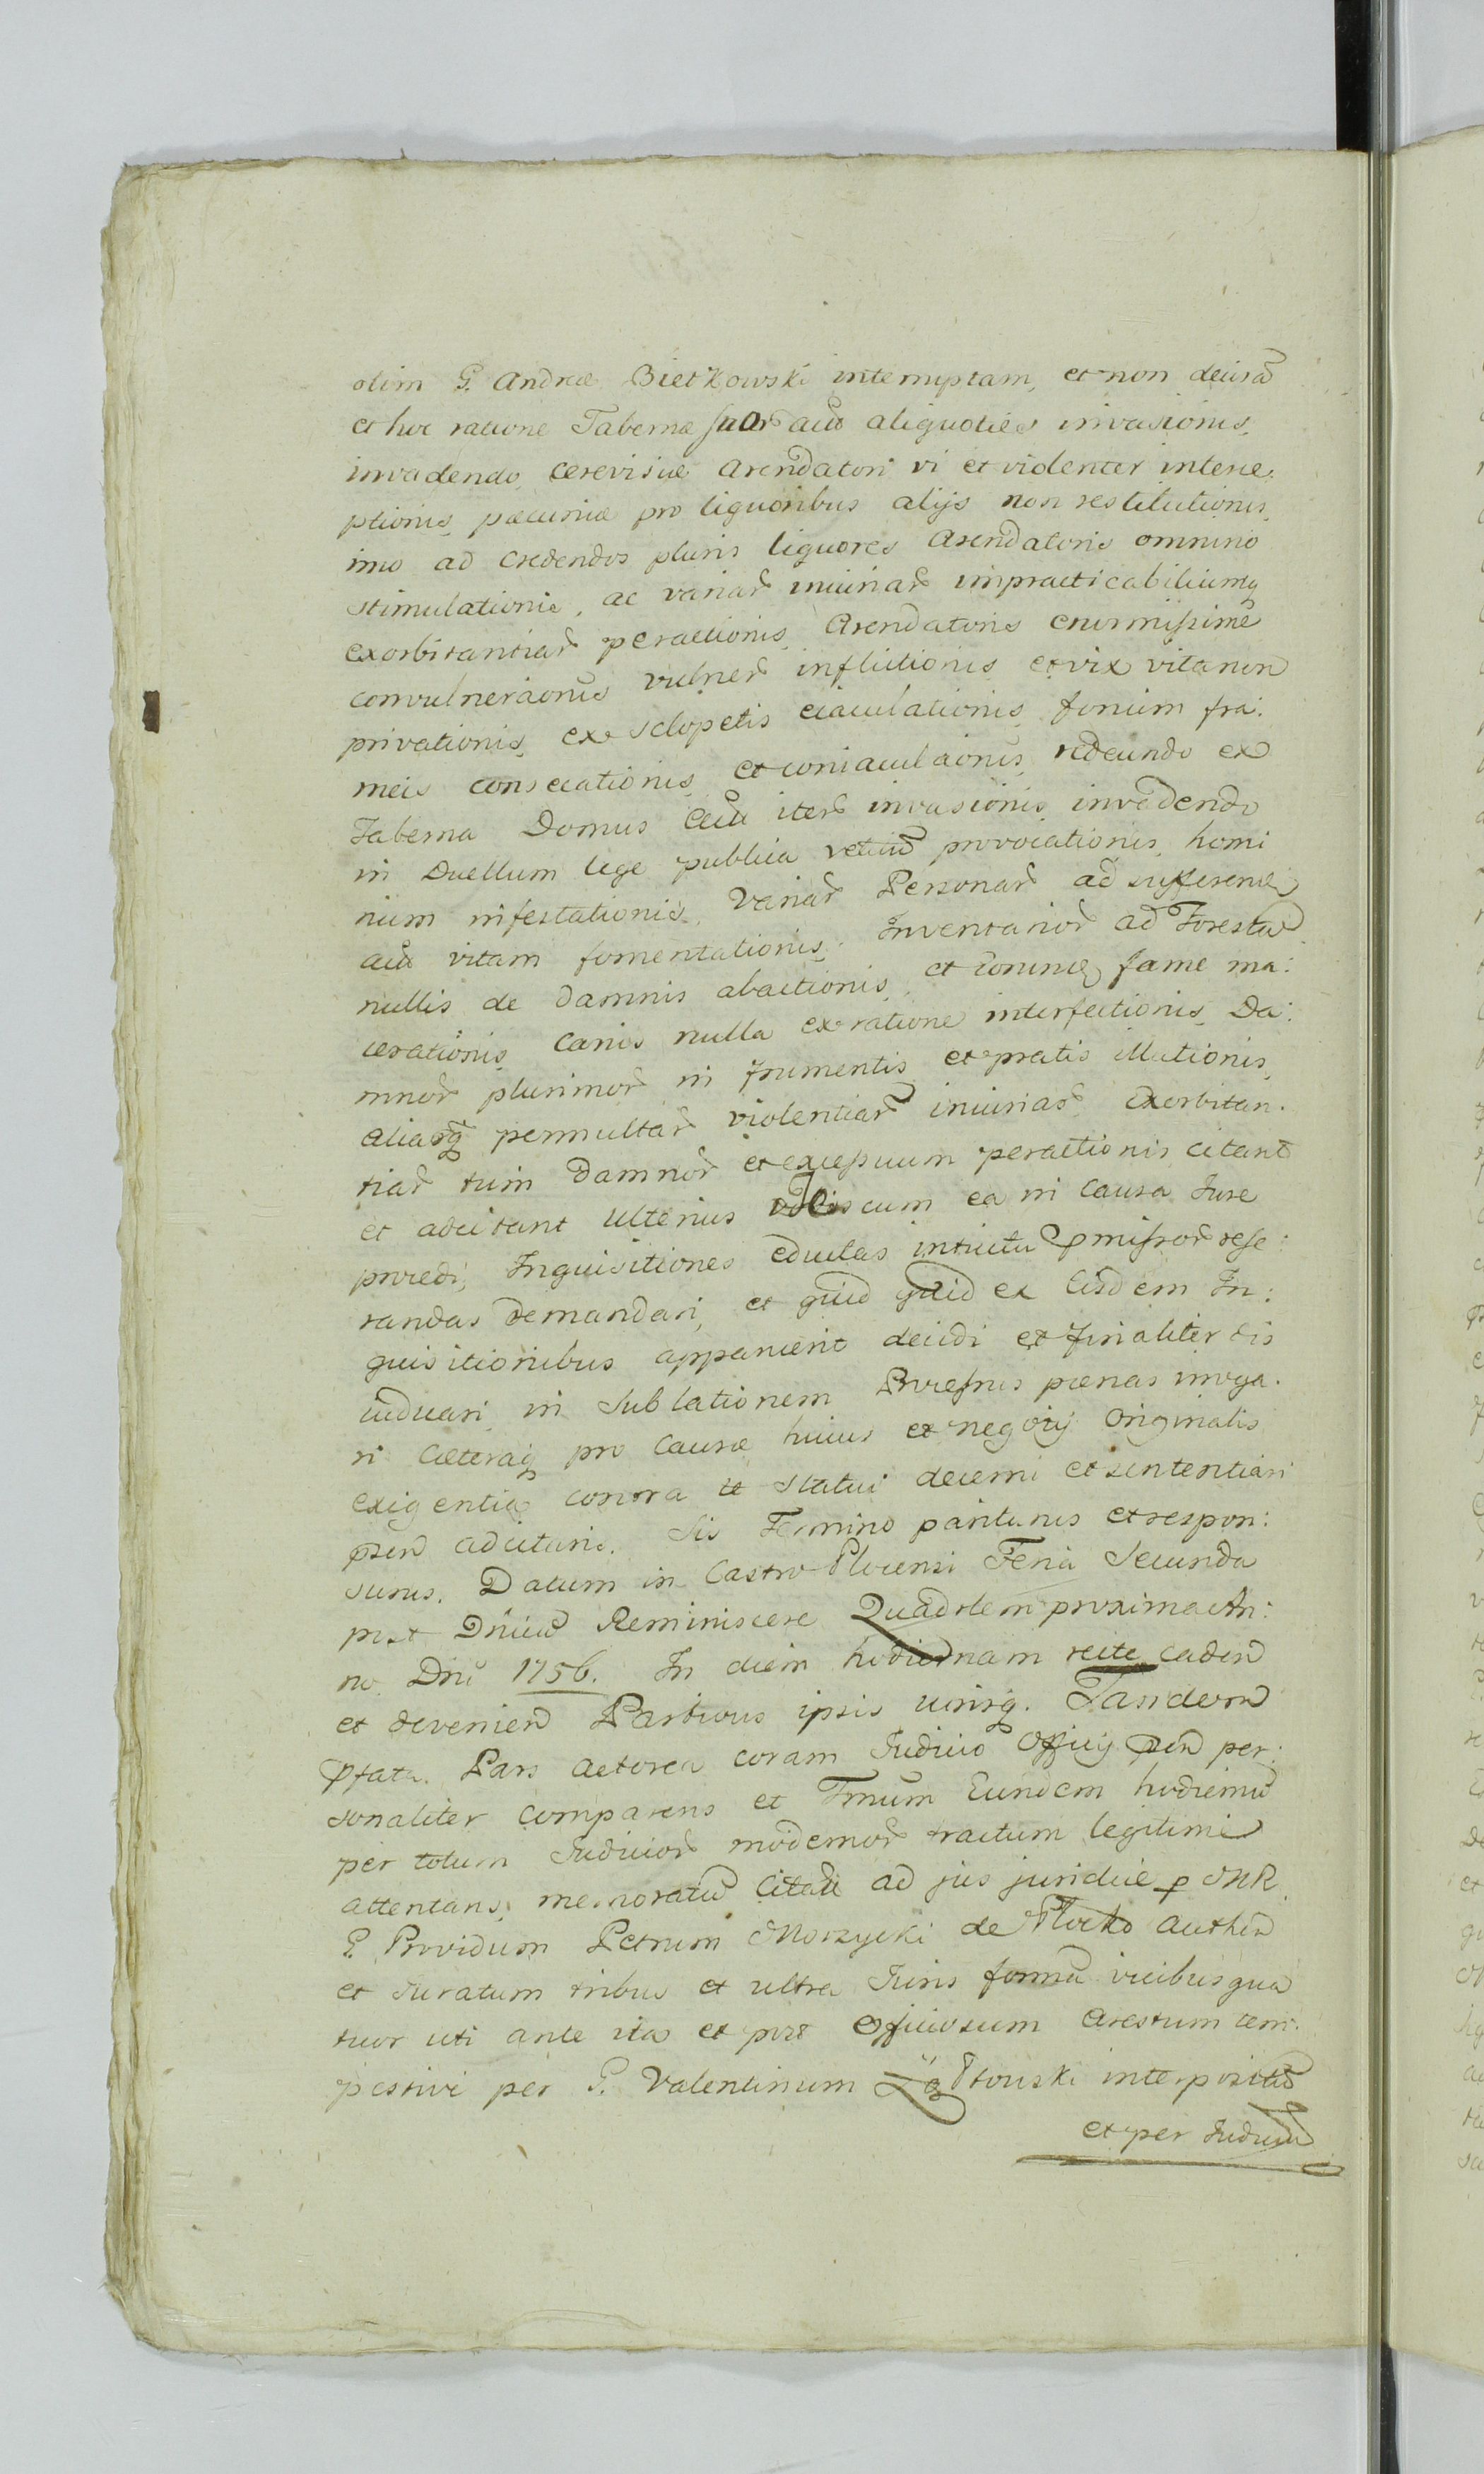 olim G. Andreæ Bietkowski interruptam, et non decisã
et hoc ratione Tabernæ suor̃ actũ aliquoties invasionis,
invadendo, cerevisiæ Arendatori vi et violenter interce:
ptionis, pæcuniæ pro liquoribus alijs non restitutionis,
imo ad credendos pluris liquores Arendatoris omnino
stimulationis, ac variar̃ iniuriar̃ impracticabiliumq̃
exorbitantiar̃ peractionis, Arendatoris enormissime
convulneraõnis vulner̃ inflictionis et vix vita non
privationis, ex sclopetis eiaculationis, funium fra:
meis consecationis, et coniaculaõnis, redeundo ex
Taberna Domus actũ iter̃ invasionis, invadendo
in Duellum lege publica vetitũ provocationis, homi
num infestationis, Variar̃ Personar̃ ad
actũ vitam fomentationis, Inventarior̃ ad Forestũ
nullis de damnis abactionis, et eorunq̃ fame ma:
cerationis, Canis nulla ex ratione interfectionis, Da:
mnor̃ plurimor̃ in frumentis et pratis illationis,
aliarq̃ permultar̃ violentiar̃ iniuriar̃ exorbitan:
tiar̃ tum Damnor̃ et excessuum peractionis citant
et adcitant Ulterius vobiscum ea in Causa Jure
procedi, Inquisitiones eductas intuitu p̃missor̃ rese:
randas demandari, et quid quid ex Eisdem In:
quisitionibus apparuerit decidi et finaliter dis
iudicari in Sublationem Processus pænas irroga:
ri Cæteraq̃ pro Causæ huius et negotij Originalis
exigentia contra te Statui decerni et sententiari
p̃sen̄ adcitaris. Sis Termino pariturus et respon:
surus. Datum in Castro Plocensi Feria Secunda
post Dñicã Reminiscere Quadrlem proxima An:
no Dnī 1756. In diem hodiernam recte caden̄
et devenien̄ Partibus ipsis utrisq̃. Tandem
p̃fata Pars Actorea coram Judicio Officij p̃sn̄ per:
sonaliter comparens et Tr̄mum Eundem hodiernũ
per totum Judicior̃ modernor̃ tractum legitime
attentans, memoratũ Citatũ ad jus juridice p̱ MR
G. Providum Petrum Morzycki de Plocko Authen̄
et Juratum tribus et ultra Juris formã vicibus qua
tuor uti ante ita et post Officiosum Arestum tem:
pestive per G. Valentinum interpositũ
et per Judiciũ